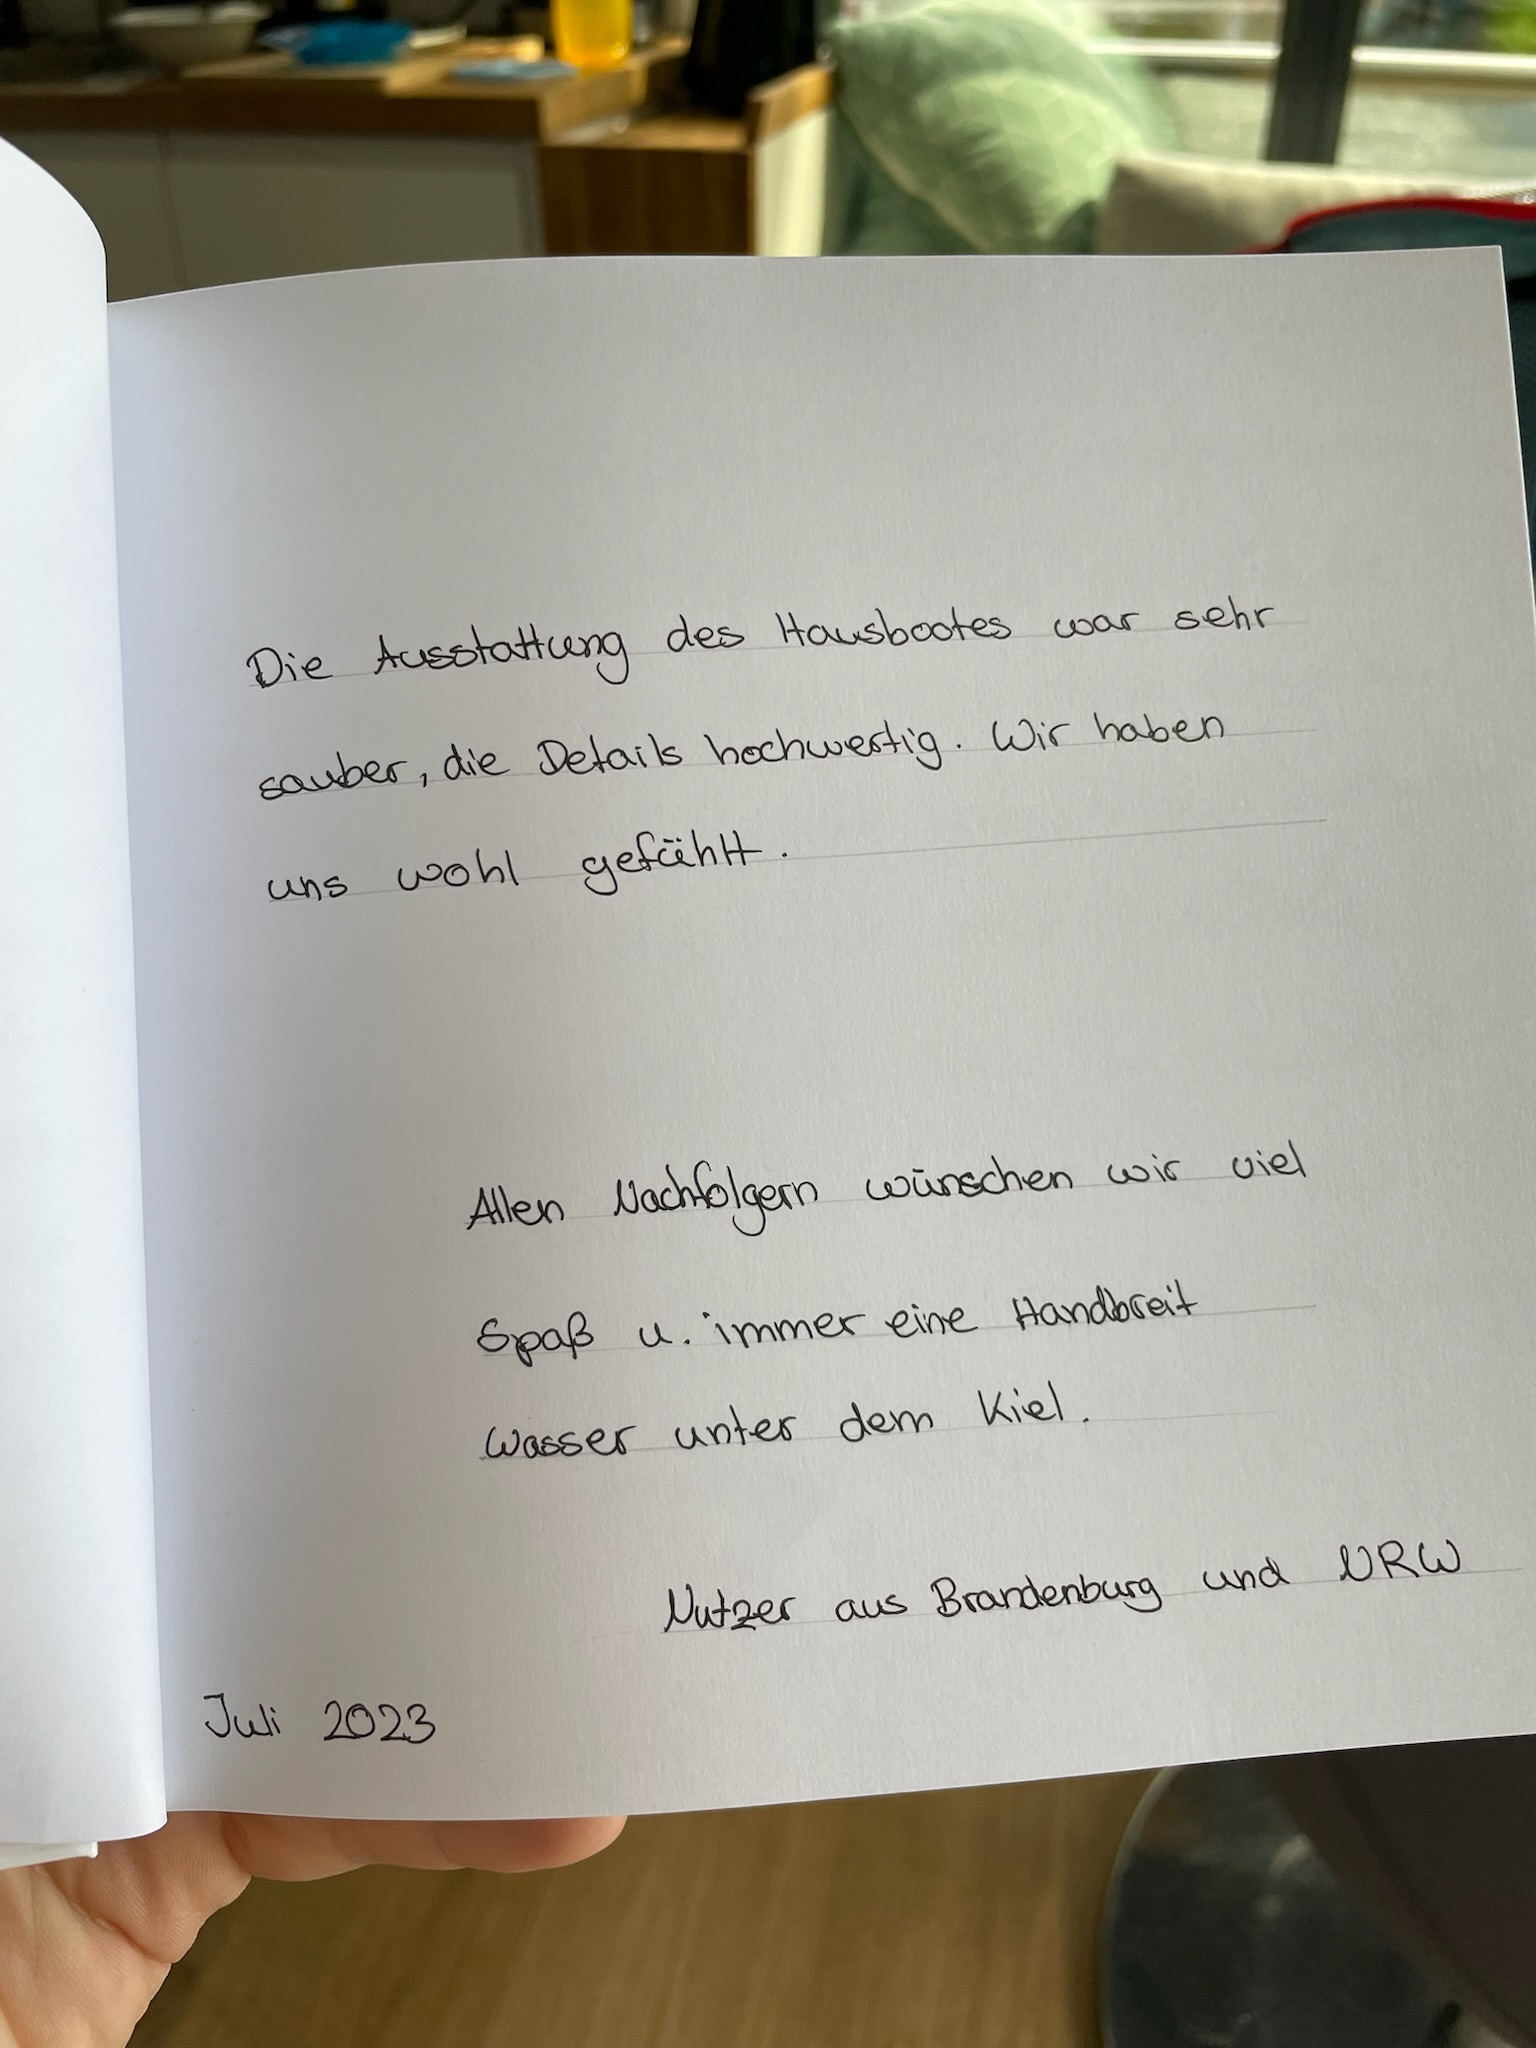 Die Ausstattung des Hausbootes war sehr
sauber, die Details hochwertig. Wir haben
uns wohl gefühlt.
Allen Nachfolgern wünschen wir viel
Spaß u. immer eine Handbreit
Wasser unter dem Kiel.
Nutzer aus Brandenburg und NRW
Juli 2023